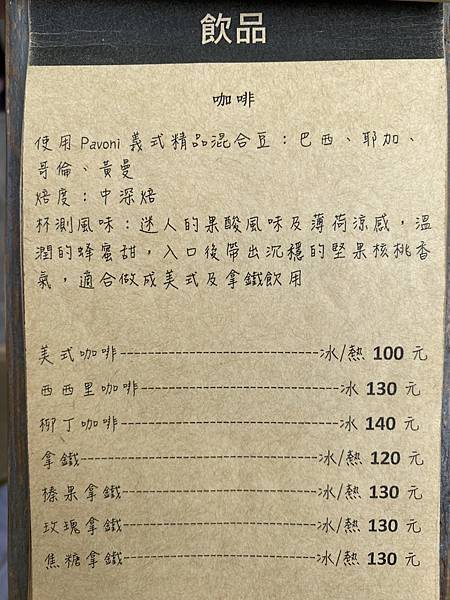 飲品
咖啡
使用 Pavoni 義式精品混合豆：巴西、耶加、
哥倫、黃曼
焙度：中深焙
杯測風味：迷人的果酸風味及薄荷涼感，溫
潤的蜂蜜甜，入口後帶出沉穩的堅果核桃香
氣，適合做成美式及拿鐵飲用
美式咖啡------------------------------冰/熱 100 元
西西里咖啡------------------------------冰 130 元
柳丁咖啡----------------------------------冰 140 元
拿鐵------------------------------------冰/熱 120 元
榛果拿鐵------------------------------冰/熱 130 元
玫瑰拿鐵------------------------------冰/熱 130 元
焦糖拿鐵------------------------------冰/熱 130 元